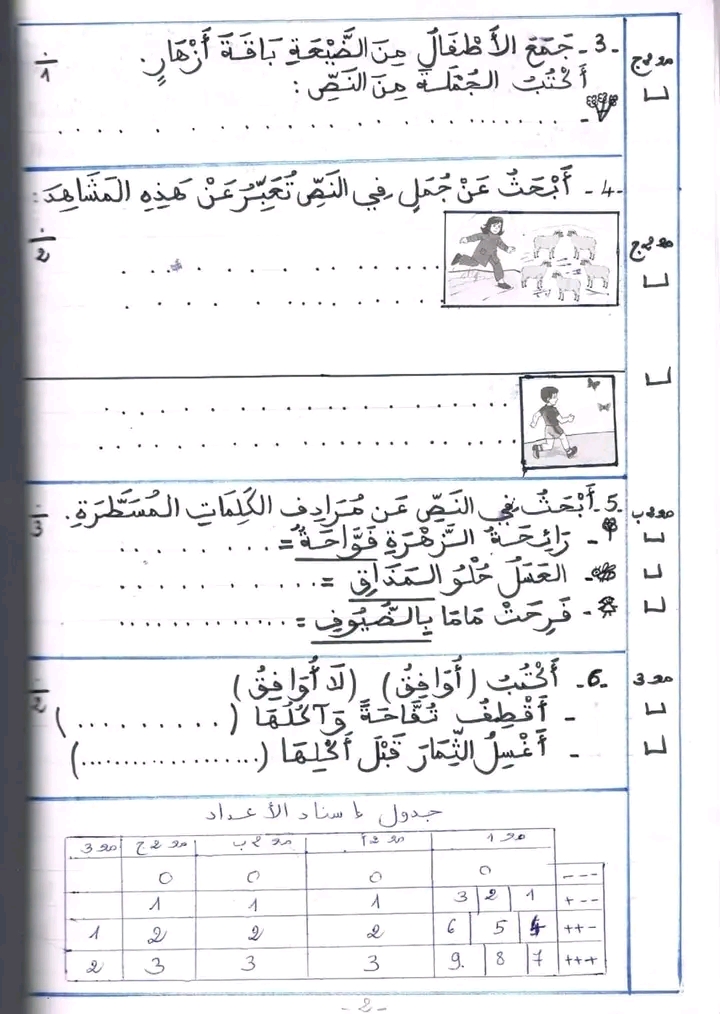 -3- جَمَعَ الأَطْفَالُ مِنَ الضَّيْعَةِ بَاقَةَ أَزْهَارٍ.
أَكْتُبُ الجُمْلَةَ مِنَ النَّصِّ:
مع 2 ج
1
-4- أَبْحَثُ عَنْ جُمَلٍ فِي النَّصِّ تُعَبِّرُ عَنْ هَذِهِ المَشَاهِدَ:
مع 2 ج
2
-5- أَبْحَثُ فِي النَّصِّ عَن مُرَادِفِ الكَلِمَاتِ المُسَطَّرَةِ.
مع 2 ب
3
- رَائِحَةُ الزَّهْرَةِ فَوَّاحَةٌ = ............
- العَسَلُ حُلْوُ المَذَاقِ = ............
- فَرِحَتْ مَامَا بِالضُّيُوفِ = ............
-6- أَكْتُبُ (أُوَافِقُ) (لَا أُوَافِقُ)
مع 3
2
- أَقْطِفُ تُفَّاحَةً وَآكُلُهَا (..........)
- أَغْسِلُ الثِّمَارَ قَبْلَ أَكْلِهَا (..................)
جدول إسناد الأعداد
مع 1 مع 2 أ مع 2 ب مع 2 ج مع 3
--- 0 0 0 0
+-- 1 2 3 1 1 1
++- 4 5 6 2 2 2 1
+++ 7 8 9 3 3 3 2
- 2 -